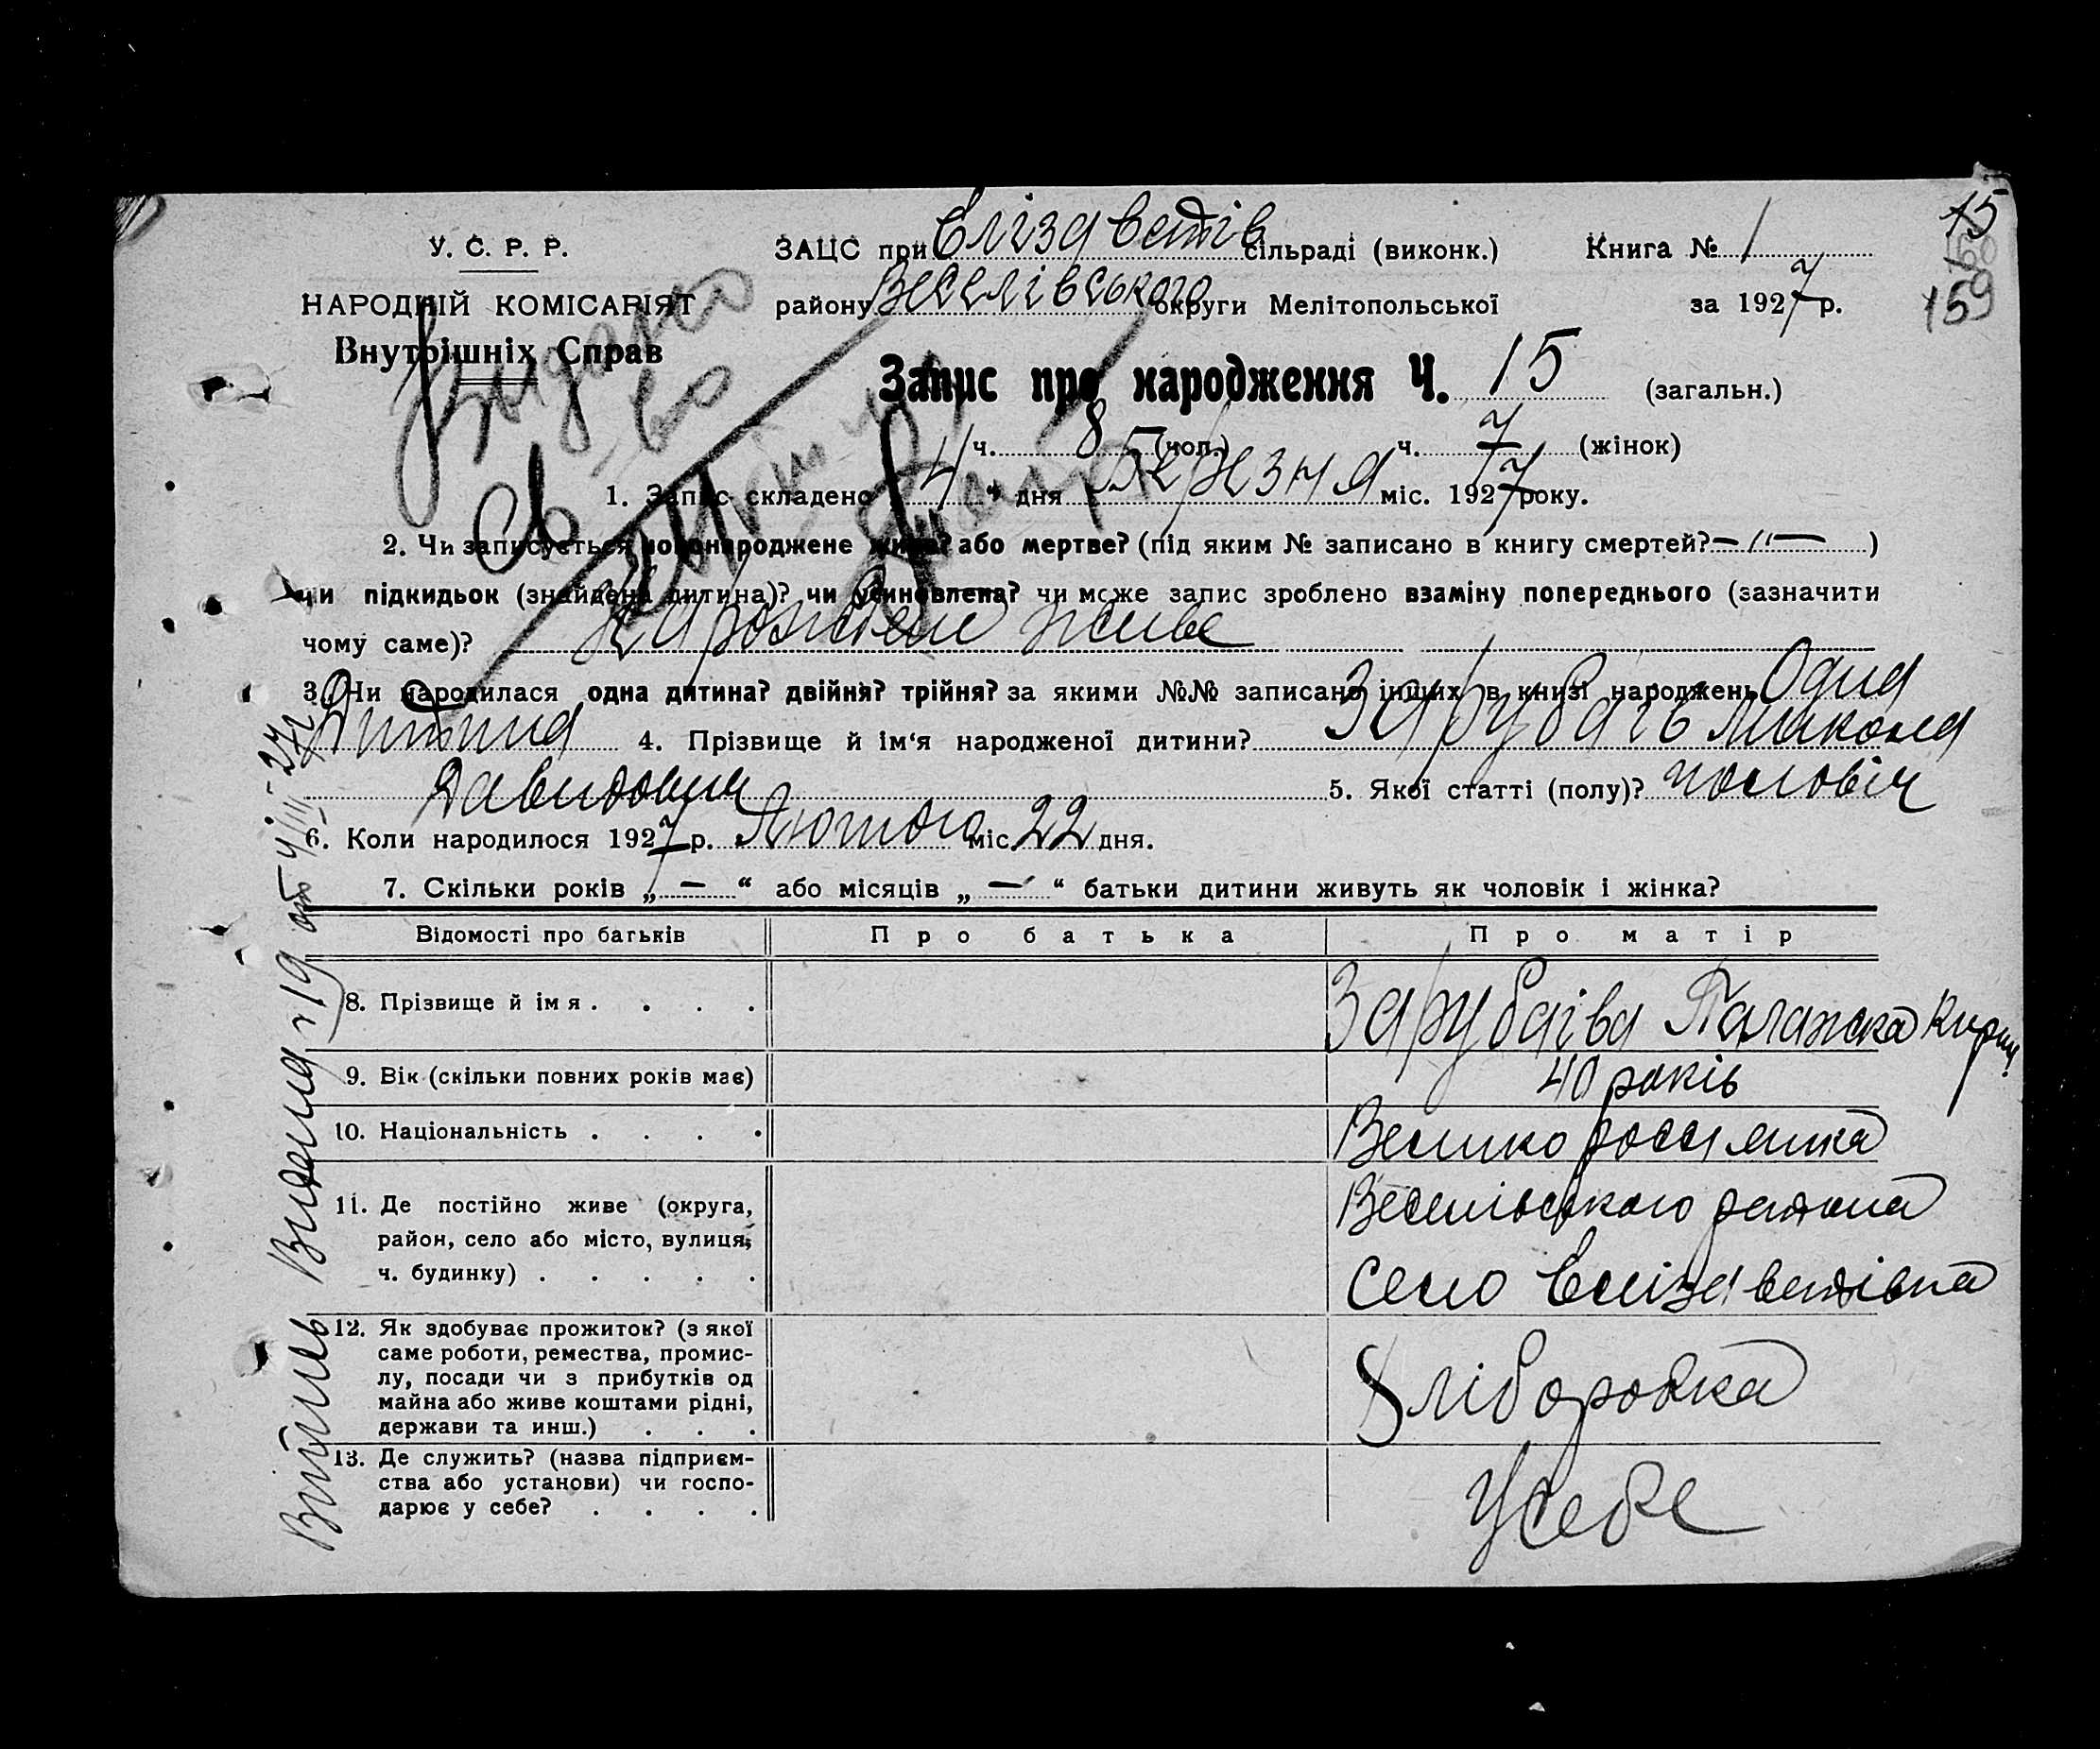 15
159
У. С. Р. Р.
НАРОДНІЙ КОМІСАРІЯТ
Внутрішніх Справ
ЗАЦС при Єлізаветів сільраді (виконк.) Книга № 1
району Веселівського округи Мелітопольської за 1927 р.
Запис про народження Ч. 15 (загальн.)
ч. 8 (чол.) ч. 7 (жінок)
Видано
св-во
1. Запис складено „ 4 “ дня Березня міс. 1927 року.
2. Чи записується новонароджене живе? або мертве? (під яким № записано в книгу смертей? — " — )
чи підкидьок (знайдена дитина)? чи усиновлена? чи може запис зроблено взаміну попереднього (зазначити
чому саме)? Нарожденне живе
3. Чи народилася одна дитина? двійня? трійня? за якими №№ записано інших в книзі народжень Одна
Дитина 4. Прізвище й ім‘я народженої дитини? Зарубаів Микола
Давидович 5. Якої статті (полу)? чоловіч
6. Коли народилося 1927 р. Лютого міс. 22 дня.
7. Скільки років „ — “ або місяців „ — “ батьки дитини живуть як чоловік і жінка?
Відомості про батьків Про батька Про матір
8. Прізвище й ім я . . . . Зарубаіва Палажка
9. Вік (скільки повних років має) 40 років
10. Національність . . . . Великоросіянка
11. Де постійно живе (округа, Веселівського района
район, село або місто, вулиця,
ч. будинку) . . . . . Село Єлізаветівка
12. Як здобуває прожиток? (з якої
саме роботи, ремества, промис-
лу, посади чи з прибутків од
майна або живе коштами рідні,
держави та инш.) . . . Хліборобка
13. Де служить? (назва підприєм-
ства або установи) чи госпо-
дарює у себе? . . . . У себе
Видена № 19 от 4/III-27 г